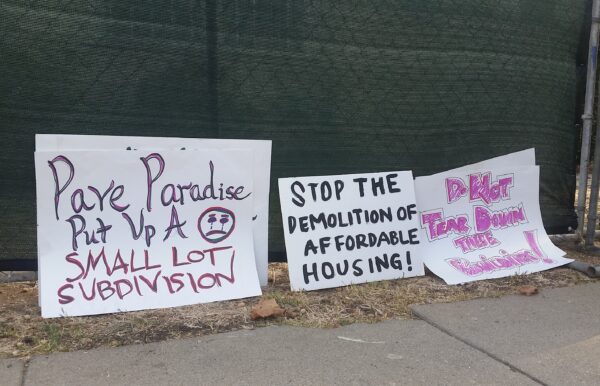 Pave Paradise
Put Up A
SMALL LOT
SUBDIVISION
STOP THE
DEMOLITION OF
AFFORDABLE
HOUSING!
Do Not
Tear Down